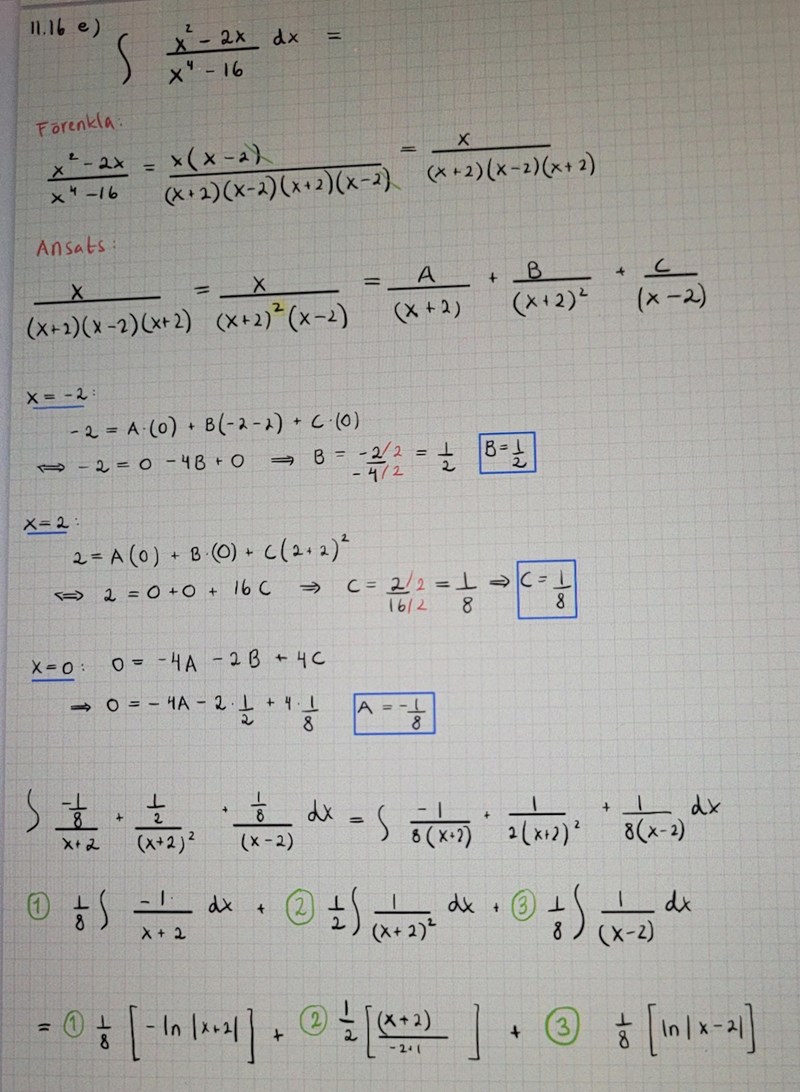 11.16 e) ∫ (x² - 2x)/(x⁴ - 16) dx =
Förenkla:
(x² - 2x)/(x⁴ - 16) = x(x - 2)/((x+2)(x-2)(x+2)(x-2)) = x/((x+2)(x-2)(x+2))
Ansats:
x/((x+2)(x-2)(x+2)) = x/((x+2)²(x-2)) = A/(x+2) + B/(x+2)² + C/(x-2)
x = -2:
-2 = A·(0) + B(-2-2) + C·(0)
⇔ -2 = 0 - 4B + 0 ⇒ B = (-2/2)/(-4/2) = 1/2 B = 1/2
x = 2:
2 = A(0) + B·(0) + C(2+2)²
⇔ 2 = 0 + 0 + 16C ⇒ C = (2/2)/(16/2) = 1/8 ⇒ C = 1/8
x = 0: 0 = -4A - 2B + 4C
⇒ 0 = -4A - 2·1/2 + 4·1/8 A = -1/8
∫ (-1/8)/(x+2) + (1/2)/(x+2)² + (1/8)/(x-2) dx = ∫ -1/(8(x+2)) + 1/(2(x+2)²) + 1/(8(x-2)) dx
① 1/8 ∫ -1/(x+2) dx + ② 1/2 ∫ 1/(x+2)² dx + ③ 1/8 ∫ 1/(x-2) dx
= ① 1/8 [-ln|x+2|] + ② 1/2 [(x+2)/(-2+1)] + ③ 1/8 [ln|x-2|]